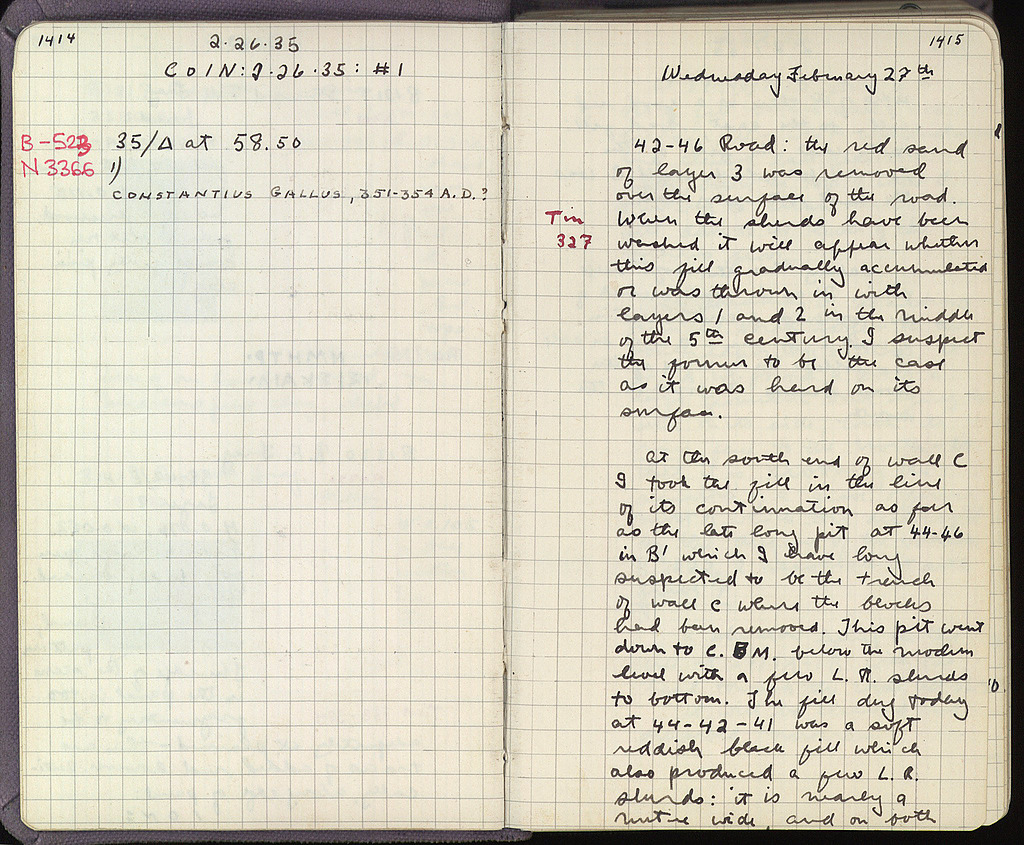 1414
2.26.35
COIN: 2.26.35: #1
B-523 35/Δ at 58.50
N3366 1)
CONSTANTIUS GALLUS, 351-354 A.D.?
1415
Wednesday February 27th
42-46 Road: the red sand
of layer 3 was removed
over the surface of the road.
Tin When the sherds have been
327 washed it will appear whether
this fill gradually accumulated
or was thrown in with
layers 1 and 2 in the middle
of the 5th century. I suspect
the former to be the case
as it was hard on its
surface.
At the south end of wall C
I took the fill in the line
of its continuation as far
as the late long pit at 44-46
in B' which I have long
suspected to be the trench
of wall C where the blocks
had been removed. This pit went
down to C. M. below the modern
level with a few L. R. sherds
to bottom. The fill dug today
at 44-42-41 was a soft
reddish black fill which
also produced a few L. R.
sherds: it is nearly a
metre wide, and on both